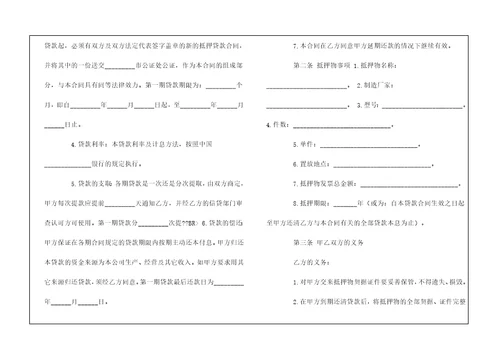 贷款起，必须有双方及双方法定代表签字盖章的新的抵押贷款合同，
并将其中的一份送交______市公证处公证，作为本合同的组成部
分，与本合同具有同等法律效力。第一期贷款期限为：_________个
月，即自_________年______月______日起，至_________年______月
______日止。
4.贷款利率：本贷款利率及计息方法，按照中国
____________银行的规定执行。
5.贷款的支取：各期贷款是一次还是分次提取，由双方商定，
甲方每次提款应提前______天通知乙方，并经乙方的信贷部门审
查认可方可使用。第一期贷款分_________次提??BR〉6.贷款的偿还：
甲方保证在各期合同规定的贷款期限内按期主动还本付息。甲方归还
本贷款的资金来源为本公司生产、经营及其它收入。如甲方要求用其
它来源归还贷款，须经乙方同意。第一期贷款最后还款日为_________
年______月______日。
7.本合同在乙方同意甲方延期还款的情况下继续有效。
第二条 抵押物事项 1.抵押物名称：
____________________。 2.制造厂家：
____________________。 3.型号：____________________。
4.件数：____________________。
5.单件：____________________。
6.置放地点：____________________。
7.抵押物发票总金额：____________________。
8.抵押期限：______年（或为：自本贷款合同生效之日起
至甲方还清乙方与本合同有关的全部贷款本息为止）。
第三条 甲乙双方的义务
乙方的义务：
1.对甲方交来抵押物契据证件要妥善保管，不得遗失、损毁。
2.在甲方到期还清贷款后，将抵押物的全部契据、证件完整